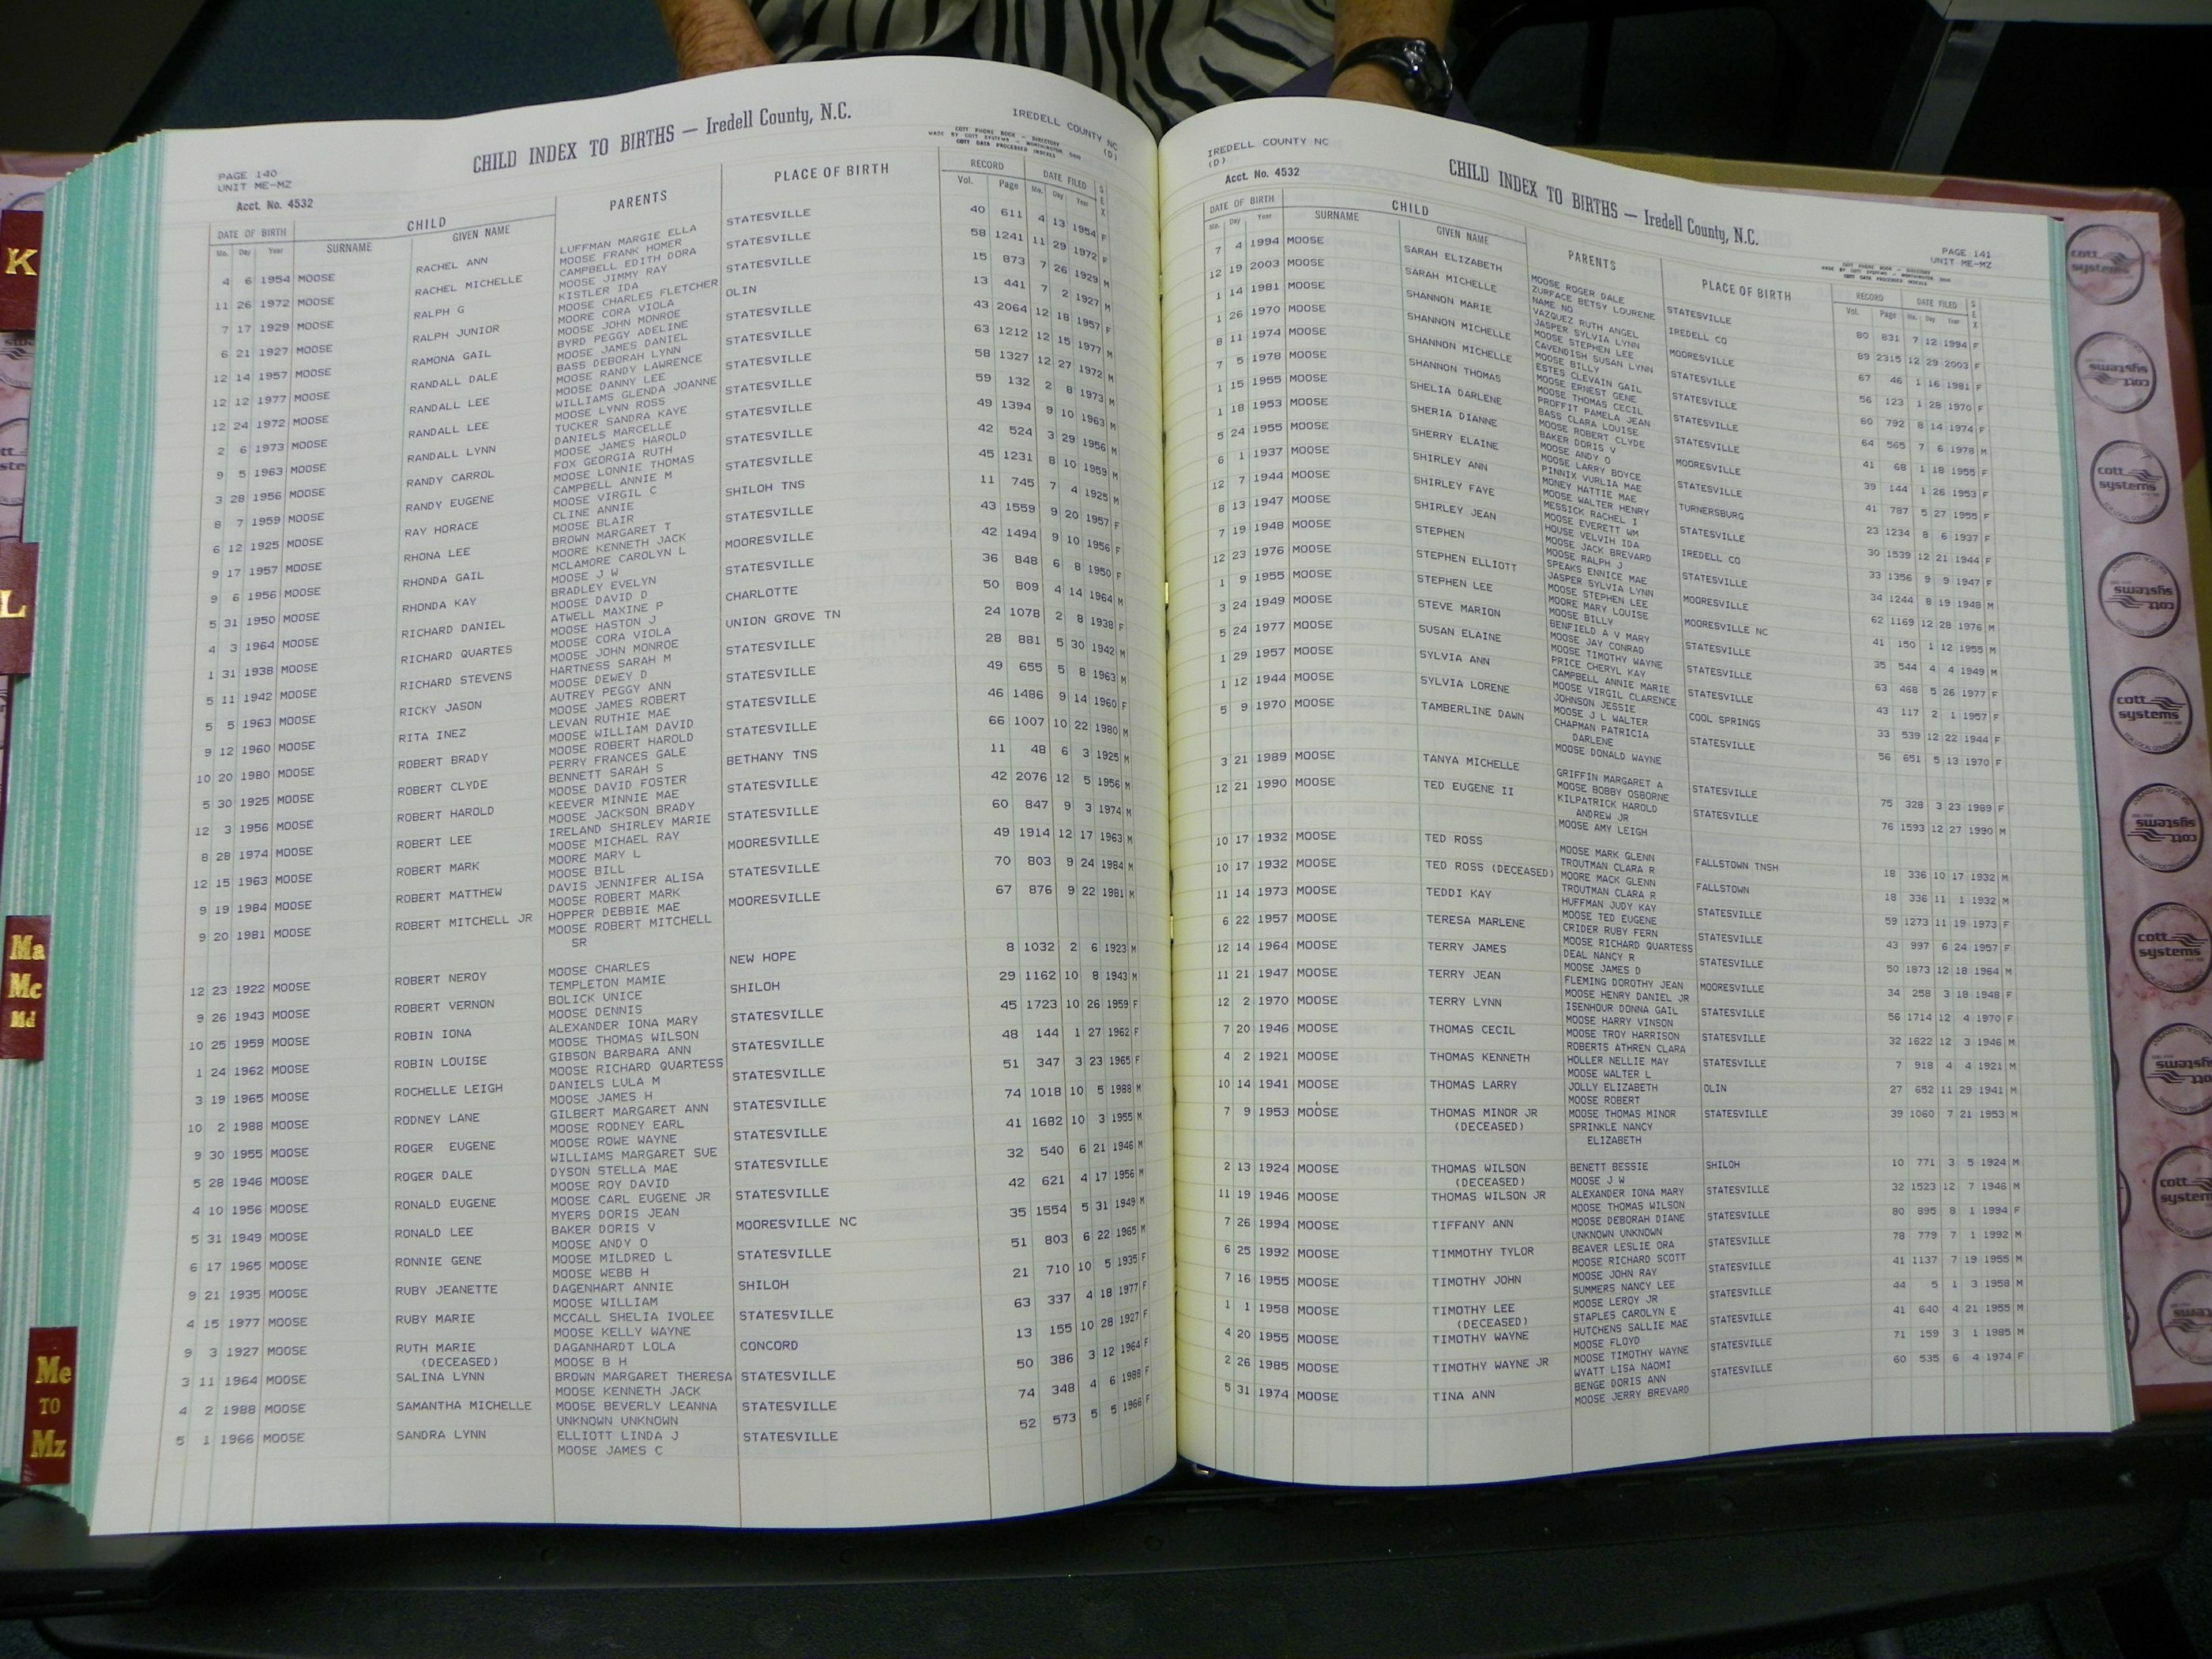 CHILD INDEX TO BIRTHS — Iredell County, N.C.
IREDELL COUNTY NC
(D)
COTT PHONE BOOK — DIRECTORY
MADE BY COTT SYSTEMS — WORTHINGTON OHIO
COTT DATA PROCESSED INDEXES
PAGE 140
UNIT ME-MZ
Acct. No. 4532
DATE OF BIRTH CHILD PARENTS PLACE OF BIRTH RECORD DATE FILED SEX
Mo. Day Year SURNAME GIVEN NAME Vol. Page Mo. Day Year
4 6 1954 MOOSE RACHEL ANN LUFFMAN MARGIE ELLA STATESVILLE 40 611 4 13 1954 F
MOOSE FRANK HOMER
11 26 1972 MOOSE RACHEL MICHELLE CAMPBELL EDITH DORA STATESVILLE 58 1241 11 29 1972 F
MOOSE JIMMY RAY
7 17 1929 MOOSE RALPH G KISTLER IDA STATESVILLE 15 873 7 26 1929 M
MOOSE CHARLES FLETCHER
6 21 1927 MOOSE RALPH JUNIOR MOORE CORA VIOLA OLIN 13 441 7 2 1927 M
MOOSE JOHN MONROE
12 14 1957 MOOSE RAMONA GAIL BYRD PEGGY ADELINE STATESVILLE 43 2064 12 18 1957 F
MOOSE JAMES DANIEL
12 12 1977 MOOSE RANDALL DALE BASS DEBORAH LYNN STATESVILLE 63 1212 12 15 1977 M
MOOSE RANDY LAWRENCE
12 24 1972 MOOSE RANDALL LEE MOOSE DANNY LEE STATESVILLE 58 1327 12 27 1972 M
WILLIAMS GLENDA JOANNE
2 6 1973 MOOSE RANDALL LEE MOOSE LYNN ROSS STATESVILLE 59 132 2 8 1973 M
TUCKER SANDRA KAYE
9 5 1963 MOOSE RANDALL LYNN DANIELS MARCELLE STATESVILLE 49 1394 9 10 1963 M
MOOSE JAMES HAROLD
3 28 1956 MOOSE RANDY CARROL FOX GEORGIA RUTH STATESVILLE 42 524 3 29 1956 M
MOOSE LONNIE THOMAS
8 7 1959 MOOSE RANDY EUGENE CAMPBELL ANNIE M STATESVILLE 45 1231 8 10 1959 M
MOOSE VIRGIL C
6 12 1925 MOOSE RAY HORACE CLINE ANNIE SHILOH TNS 11 745 7 4 1925 M
MOOSE BLAIR
9 17 1957 MOOSE RHONA LEE BROWN MARGARET T STATESVILLE 43 1559 9 20 1957 F
MOORE KENNETH JACK
9 6 1956 MOOSE RHONDA GAIL MCLAMORE CAROLYN L MOORESVILLE 42 1494 9 10 1956 F
MOOSE J W
5 31 1950 MOOSE RHONDA KAY BRADLEY EVELYN STATESVILLE 36 848 6 8 1950 F
MOOSE DAVID D
4 3 1964 MOOSE RICHARD DANIEL ATWELL MAXINE P CHARLOTTE 50 809 4 14 1964 M
MOOSE HASTON J
1 31 1938 MOOSE RICHARD QUARTES MOOSE CORA VIOLA UNION GROVE TN 24 1078 2 8 1938 F
MOOSE JOHN MONROE
5 11 1942 MOOSE RICHARD STEVENS HARTNESS SARAH M STATESVILLE 28 881 5 30 1942 M
MOOSE DEWEY D
5 5 1963 MOOSE RICKY JASON AUTREY PEGGY ANN STATESVILLE 49 655 5 8 1963 M
MOOSE JAMES ROBERT
9 12 1960 MOOSE RITA INEZ LEVAN RUTHIE MAE STATESVILLE 46 1486 9 14 1960 F
MOOSE WILLIAM DAVID
10 20 1980 MOOSE ROBERT BRADY MOOSE ROBERT HAROLD STATESVILLE 66 1007 10 22 1980 M
PERRY FRANCES GALE
5 30 1925 MOOSE ROBERT CLYDE BENNETT SARAH S BETHANY TNS 11 48 6 3 1925 M
MOOSE DAVID FOSTER
12 3 1956 MOOSE ROBERT HAROLD KEEVER MINNIE MAE STATESVILLE 42 2076 12 5 1956 M
MOOSE JACKSON BRADY
8 28 1974 MOOSE ROBERT LEE IRELAND SHIRLEY MARIE STATESVILLE 60 847 9 3 1974 M
MOOSE MICHAEL RAY
12 15 1963 MOOSE ROBERT MARK MOORE MARY L MOORESVILLE 49 1914 12 17 1963 M
MOOSE BILL
9 19 1984 MOOSE ROBERT MATTHEW DAVIS JENNIFER ALISA STATESVILLE 70 803 9 24 1984 M
MOOSE ROBERT MARK
9 20 1981 MOOSE ROBERT MITCHELL JR HOPPER DEBBIE MAE MOORESVILLE 67 876 9 22 1981 M
MOOSE ROBERT MITCHELL
SR
12 23 1922 MOOSE ROBERT NEROY MOOSE CHARLES NEW HOPE 8 1032 2 6 1923 M
TEMPLETON MAMIE
9 26 1943 MOOSE ROBERT VERNON BOLICK UNICE SHILOH 29 1162 10 8 1943 M
MOOSE DENNIS
10 25 1959 MOOSE ROBIN IONA ALEXANDER IONA MARY STATESVILLE 45 1723 10 26 1959 F
MOOSE THOMAS WILSON
1 24 1962 MOOSE ROBIN LOUISE GIBSON BARBARA ANN STATESVILLE 48 144 1 27 1962 F
MOOSE RICHARD QUARTESS
3 19 1965 MOOSE ROCHELLE LEIGH DANIELS LULA M STATESVILLE 51 347 3 23 1965 F
MOOSE JAMES H
10 2 1988 MOOSE RODNEY LANE GILBERT MARGARET ANN STATESVILLE 74 1018 10 5 1988 M
MOOSE RODNEY EARL
9 30 1955 MOOSE ROGER EUGENE MOOSE ROWE WAYNE STATESVILLE 41 1682 10 3 1955 M
WILLIAMS MARGARET SUE
5 28 1946 MOOSE ROGER DALE DYSON STELLA MAE STATESVILLE 32 540 6 21 1946 M
MOOSE ROY DAVID
4 10 1956 MOOSE RONALD EUGENE MOOSE CARL EUGENE JR STATESVILLE 42 621 4 17 1956 M
MYERS DORIS JEAN
5 31 1949 MOOSE RONALD LEE BAKER DORIS V MOORESVILLE NC 35 1554 5 31 1949 M
MOOSE ANDY O
6 17 1965 MOOSE RONNIE GENE MOOSE MILDRED L STATESVILLE 51 803 6 22 1965 M
MOOSE WEBB H
9 21 1935 MOOSE RUBY JEANETTE DAGENHART ANNIE SHILOH 21 710 10 5 1935 F
MOOSE WILLIAM
4 15 1977 MOOSE RUBY MARIE MCCALL SHELIA IVOLEE STATESVILLE 63 337 4 18 1977 F
MOOSE KELLY WAYNE
9 3 1927 MOOSE RUTH MARIE DAGANHARDT LOLA CONCORD 13 155 10 28 1927 F
(DECEASED) MOOSE B H
3 11 1964 MOOSE SALINA LYNN BROWN MARGARET THERESA STATESVILLE 50 386 3 12 1964 F
MOOSE KENNETH JACK
4 2 1988 MOOSE SAMANTHA MICHELLE MOOSE BEVERLY LEANNA STATESVILLE 74 348 4 6 1988 F
UNKNOWN UNKNOWN
5 1 1966 MOOSE SANDRA LYNN ELLIOTT LINDA J STATESVILLE 52 573 5 5 1966 F
MOOSE JAMES C
IREDELL COUNTY NC
(D)
Acct. No. 4532
CHILD INDEX TO BIRTHS — Iredell County, N.C.
PAGE 141
UNIT ME-MZ
COTT PHONE BOOK — DIRECTORY
MADE BY COTT SYSTEMS — WORTHINGTON OHIO
COTT DATA PROCESSED INDEXES
DATE OF BIRTH CHILD PARENTS PLACE OF BIRTH RECORD DATE FILED SEX
Mo. Day Year SURNAME GIVEN NAME Vol. Page Mo. Day Year
7 4 1994 MOOSE SARAH ELIZABETH MOOSE ROGER DALE STATESVILLE 80 831 7 12 1994 F
ZURFACE BETSY LOURENE
12 19 2003 MOOSE SARAH MICHELLE NAME NO IREDELL CO 89 2315 12 29 2003 F
VAZQUEZ RUTH ANGEL
1 14 1981 MOOSE SHANNON MARIE JASPER SYLVIA LYNN MOORESVILLE 67 46 1 16 1981 F
MOOSE STEPHEN LEE
1 26 1970 MOOSE SHANNON MICHELLE CAVENDISH SUSAN LYNN STATESVILLE 56 123 1 28 1970 F
MOOSE BILLY
8 11 1974 MOOSE SHANNON MICHELLE ESTES CLEVAIN GAIL STATESVILLE 60 792 8 14 1974 F
MOOSE ERNEST GENE
7 5 1978 MOOSE SHANNON THOMAS MOOSE THOMAS CECIL STATESVILLE 64 565 7 6 1978 M
PROFFIT PAMELA JEAN
1 15 1955 MOOSE SHELIA DARLENE BASS CLARA LOUISE MOORESVILLE 41 68 1 18 1955 F
MOOSE ROBERT CLYDE
1 18 1953 MOOSE SHERIA DIANNE BAKER DORIS V STATESVILLE 39 144 1 26 1953 F
MOOSE ANDY O
5 24 1955 MOOSE SHERRY ELAINE MOOSE LARRY BOYCE TURNERSBURG 41 787 5 27 1955 F
PINNIX VURLIA MAE
6 1 1937 MOOSE SHIRLEY ANN MONEY HATTIE MAE STATESVILLE 23 1234 8 6 1937 F
MOOSE WALTER HENRY
12 7 1944 MOOSE SHIRLEY FAYE MESSICK RACHEL I IREDELL CO 30 1539 12 21 1944 F
MOOSE EVERETT WM
8 13 1947 MOOSE SHIRLEY JEAN HOUSE VELVIH IDA STATESVILLE 33 1356 9 9 1947 F
MOOSE JACK BREVARD
7 19 1948 MOOSE STEPHEN MOOSE RALPH J MOORESVILLE 34 1244 8 19 1948 M
SPEAKS ENNICE MAE
12 23 1976 MOOSE STEPHEN ELLIOTT JASPER SYLVIA LYNN MOORESVILLE NC 62 1169 12 28 1976 M
MOOSE STEPHEN LEE
1 9 1955 MOOSE STEPHEN LEE MOORE MARY LOUISE STATESVILLE 41 150 1 12 1955 M
MOOSE BILLY
3 24 1949 MOOSE STEVE MARION BENFIELD A V MARY STATESVILLE 35 544 4 4 1949 M
MOOSE JAY CONRAD
5 24 1977 MOOSE SUSAN ELAINE MOOSE TIMOTHY WAYNE STATESVILLE 63 468 5 26 1977 F
PRICE CHERYL KAY
1 29 1957 MOOSE SYLVIA ANN CAMPBELL ANNIE MARIE STATESVILLE 43 117 2 1 1957 F
MOOSE VIRGIL CLARENCE
1 12 1944 MOOSE SYLVIA LORENE JOHNSON JESSIE COOL SPRINGS 33 539 12 22 1944 F
MOOSE J L WALTER
5 9 1970 MOOSE TAMBERLINE DAWN CHAPMAN PATRICIA STATESVILLE 56 651 5 13 1970 F
DARLENE
MOOSE DONALD WAYNE
3 21 1989 MOOSE TANYA MICHELLE GRIFFIN MARGARET A STATESVILLE 75 328 3 23 1989 F
MOOSE BOBBY OSBORNE
12 21 1990 MOOSE TED EUGENE II KILPATRICK HAROLD STATESVILLE 76 1593 12 27 1990 M
ANDREW JR
MOOSE AMY LEIGH
10 17 1932 MOOSE TED ROSS MOOSE MARK GLENN FALLSTOWN TNSH 18 336 10 17 1932 M
TROUTMAN CLARA R
10 17 1932 MOOSE TED ROSS (DECEASED) MOORE MACK GLENN FALLSTOWN 18 336 11 1 1932 M
TROUTMAN CLARA R
11 14 1973 MOOSE TEDDI KAY HUFFMAN JUDY KAY STATESVILLE 59 1273 11 19 1973 F
MOOSE TED EUGENE
6 22 1957 MOOSE TERESA MARLENE CRIDER RUBY FERN STATESVILLE 43 997 6 24 1957 F
MOOSE RICHARD QUARTESS
12 14 1964 MOOSE TERRY JAMES DEAL NANCY R STATESVILLE 50 1873 12 18 1964 M
MOOSE JAMES D
11 21 1947 MOOSE TERRY JEAN FLEMING DOROTHY JEAN MOORESVILLE 34 258 3 18 1948 F
MOOSE HENRY DANIEL JR
12 2 1970 MOOSE TERRY LYNN ISENHOUR DONNA GAIL STATESVILLE 56 1714 12 4 1970 F
MOOSE HARRY VINSON
7 20 1946 MOOSE THOMAS CECIL MOOSE TROY HARRISON STATESVILLE 32 1622 12 3 1946 M
ROBERTS ATHREN CLARA
4 2 1921 MOOSE THOMAS KENNETH HOLLER NELLIE MAY STATESVILLE 7 918 4 4 1921 M
MOOSE WALTER L
10 14 1941 MOOSE THOMAS LARRY JOLLY ELIZABETH OLIN 27 652 11 29 1941 M
MOOSE ROBERT
7 9 1953 MOOSE THOMAS MINOR JR MOOSE THOMAS MINOR STATESVILLE 39 1060 7 21 1953 M
(DECEASED) SPRINKLE NANCY
ELIZABETH
2 13 1924 MOOSE THOMAS WILSON BENETT BESSIE SHILOH 10 771 3 5 1924 M
(DECEASED) MOOSE J W
11 19 1946 MOOSE THOMAS WILSON JR ALEXANDER IONA MARY STATESVILLE 32 1523 12 7 1946 M
MOOSE THOMAS WILSON
7 26 1994 MOOSE TIFFANY ANN MOOSE DEBORAH DIANE STATESVILLE 80 895 8 1 1994 F
UNKNOWN UNKNOWN
6 25 1992 MOOSE TIMMOTHY TYLOR BEAVER LESLIE ORA STATESVILLE 78 779 7 1 1992 M
MOOSE RICHARD SCOTT
7 16 1955 MOOSE TIMOTHY JOHN MOOSE JOHN RAY STATESVILLE 41 1137 7 19 1955 M
SUMMERS NANCY LEE
1 1 1958 MOOSE TIMOTHY LEE MOOSE LEROY JR STATESVILLE 44 5 1 3 1958 M
(DECEASED) STAPLES CAROLYN E
4 20 1955 MOOSE TIMOTHY WAYNE HUTCHENS SALLIE MAE STATESVILLE 41 640 4 21 1955 M
MOOSE FLOYD
2 26 1985 MOOSE TIMOTHY WAYNE JR MOOSE TIMOTHY WAYNE STATESVILLE 71 159 3 1 1985 M
WYATT LISA NAOMI
5 31 1974 MOOSE TINA ANN BENGE DORIS ANN STATESVILLE 60 535 6 4 1974 F
MOOSE JERRY BREVARD
K
L
Ma
Mc
Md
Me
TO
Mz
cott systems
cott systems
cott systems
cott systems
cott systems